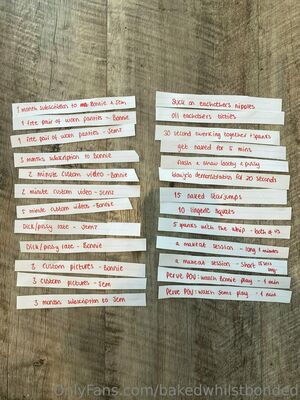 1 month subscription to Bonnie & Jem
1 free pair of worn panties - Bonnie
1 free pair of worn panties - Jemz
3 months subscription to Bonnie
2 minute custom video - Bonnie
2 minute custom video - Jemz
5 minute custom videos - Bonnie
Dick/pussy rate - Jemz
Dick/pussy rate - Bonnie
3 custom pictures - Bonnie
3 custom pictures - Jem
3 months subscription to Jem
Suck on eachothers nipples
Oil eachothers titties
30 second twerking together + spanks
get naked for 5 mins
flash a boob & pussy
blowjob demonstration for 20 seconds
15 naked starjumps
10 lingerie squats
5 spanks with the whip - both of us
a makeout session - long 1 minutes
a makeout session - short 15 secs
Perve POV: watch Bonnie play - 1 min
Perve POV: watch Jemz play - 1 mins
OnlyFans.com/bakedwhilstbonded